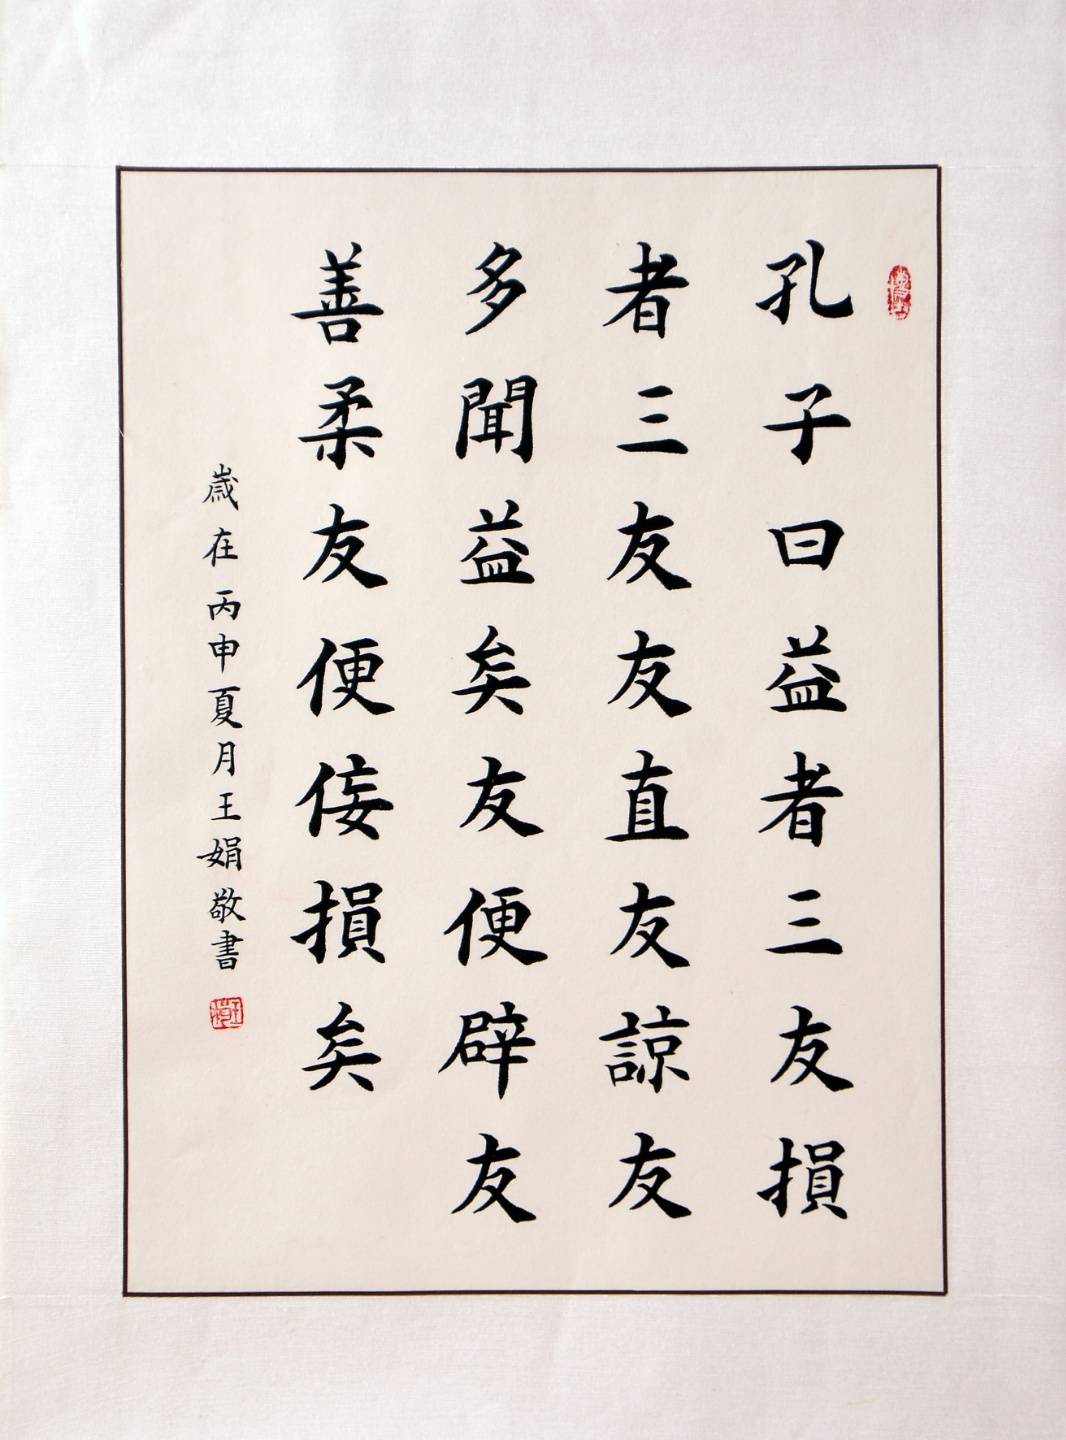 孔子曰益者三友損
者三友友直友諒友
多聞益矣友便辟友
善柔友便佞損矣
歲在丙申夏月王娟敬書